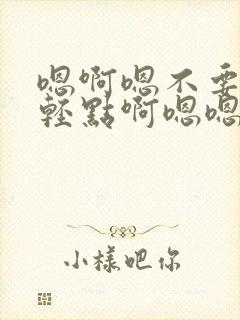 嗯啊嗯不要
輕點啊嗯嗯
小樣吧你